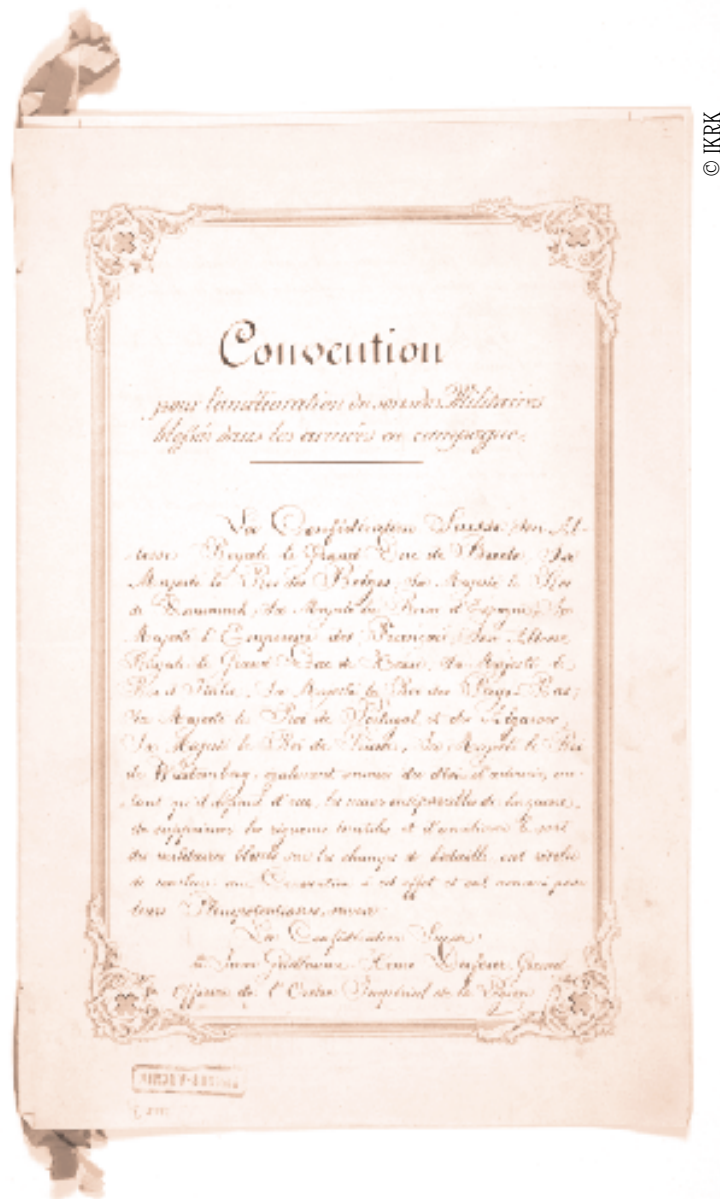 © IKRK
Convention
pour l'amélioration du sort des Militaires
blessés dans les armées en campagne.
La Confédération Suisse, Son Al-
tesse Royale le Grand Duc de Bade, Sa
Majesté le Roi des Belges, Sa Majesté le Roi
de Danemark, Sa Majesté la Reine d'Espagne, Sa
Majesté l'Empereur des Français, Son Altesse
Royale le Grand Duc de Hesse, Sa Majesté le
Roi d'Italie, Sa Majesté le Roi des Pays-Bas,
Sa Majesté le Roi de Portugal et des Algarves,
Sa Majesté le Roi de Prusse, Sa Majesté le Roi
de Wurtemberg, également animés du désir d'adoucir, au-
tant qu'il dépend d'eux, les maux inséparables de la guerre,
de supprimer les rigueurs inutiles et d'améliorer le sort
des militaires blessés sur les champs de bataille, ont résolu
de conclure une Convention à cet effet et ont nommé pour
leurs Plénipotentiaires, savoir:
La Confédération Suisse:
le Sieur Guillaume Henri Dufour, Grand
Officier de l'Ordre Impérial de la Légion